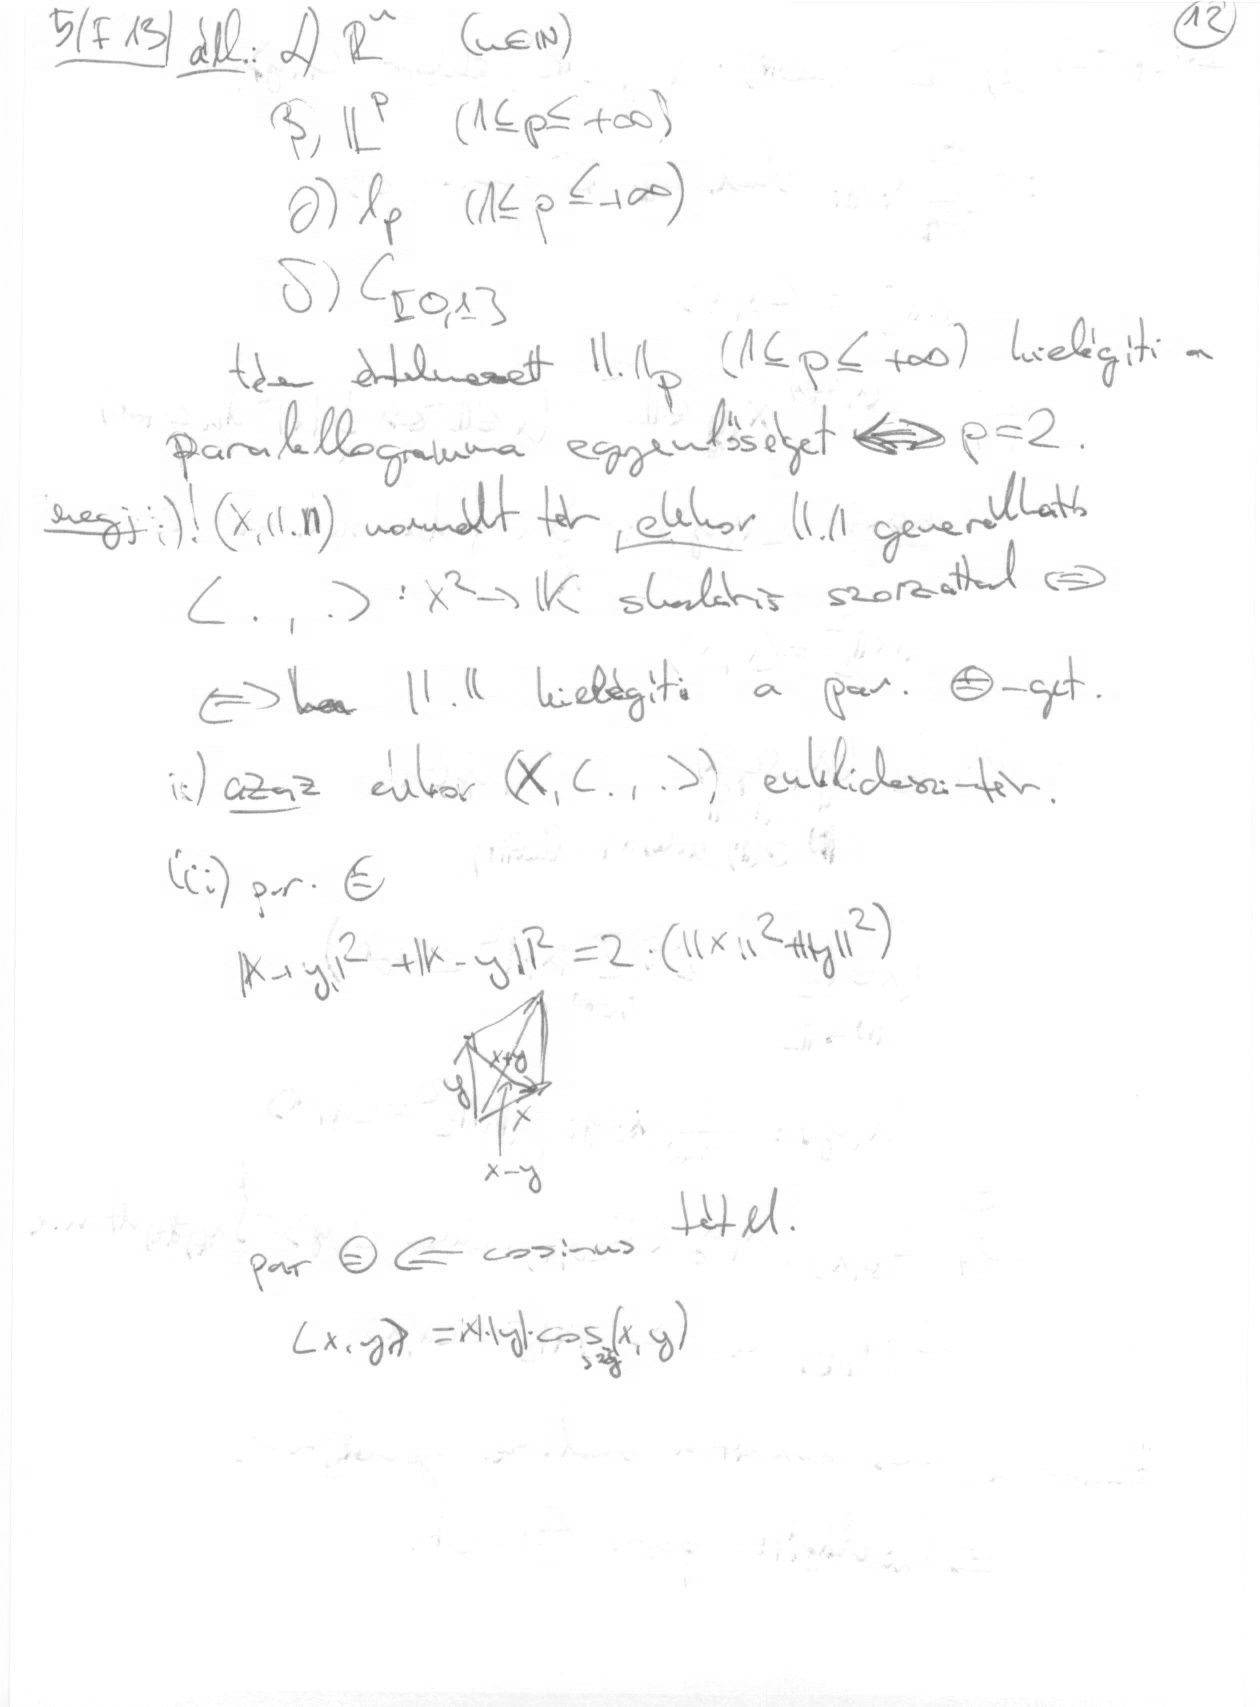 5/(F 13) áll.: α) ℝⁿ (n∈ℕ) 12
β) 𝕃ᵖ (1≤p≤+∞)
γ) lₚ (1≤p≤+∞)
δ) C[0,1]
téren értelmezett ||.||ₚ (1≤p≤+∞) kielégíti a
paralellogramma egyenlőséget ⟺ p=2.
megj: i) ! (X, ||.||) normált tér, ekkor ||.|| generálható
<.,.> : X²→𝕂 skaláris szorzattal ⟺
⟺ ha ||.|| kielégíti a par. ⊜-get.
ii) azaz ekkor (X, <.,.>) euklideszi-tér.
iii) par. ⊜
||x+y||² + ||x-y||² = 2·(||x||²+||y||²)
x+y
y
x
x-y
par ⊜ ⟸ cosinus tétel.
<x,y> = |x|·|y|·cos(x,y)
szög